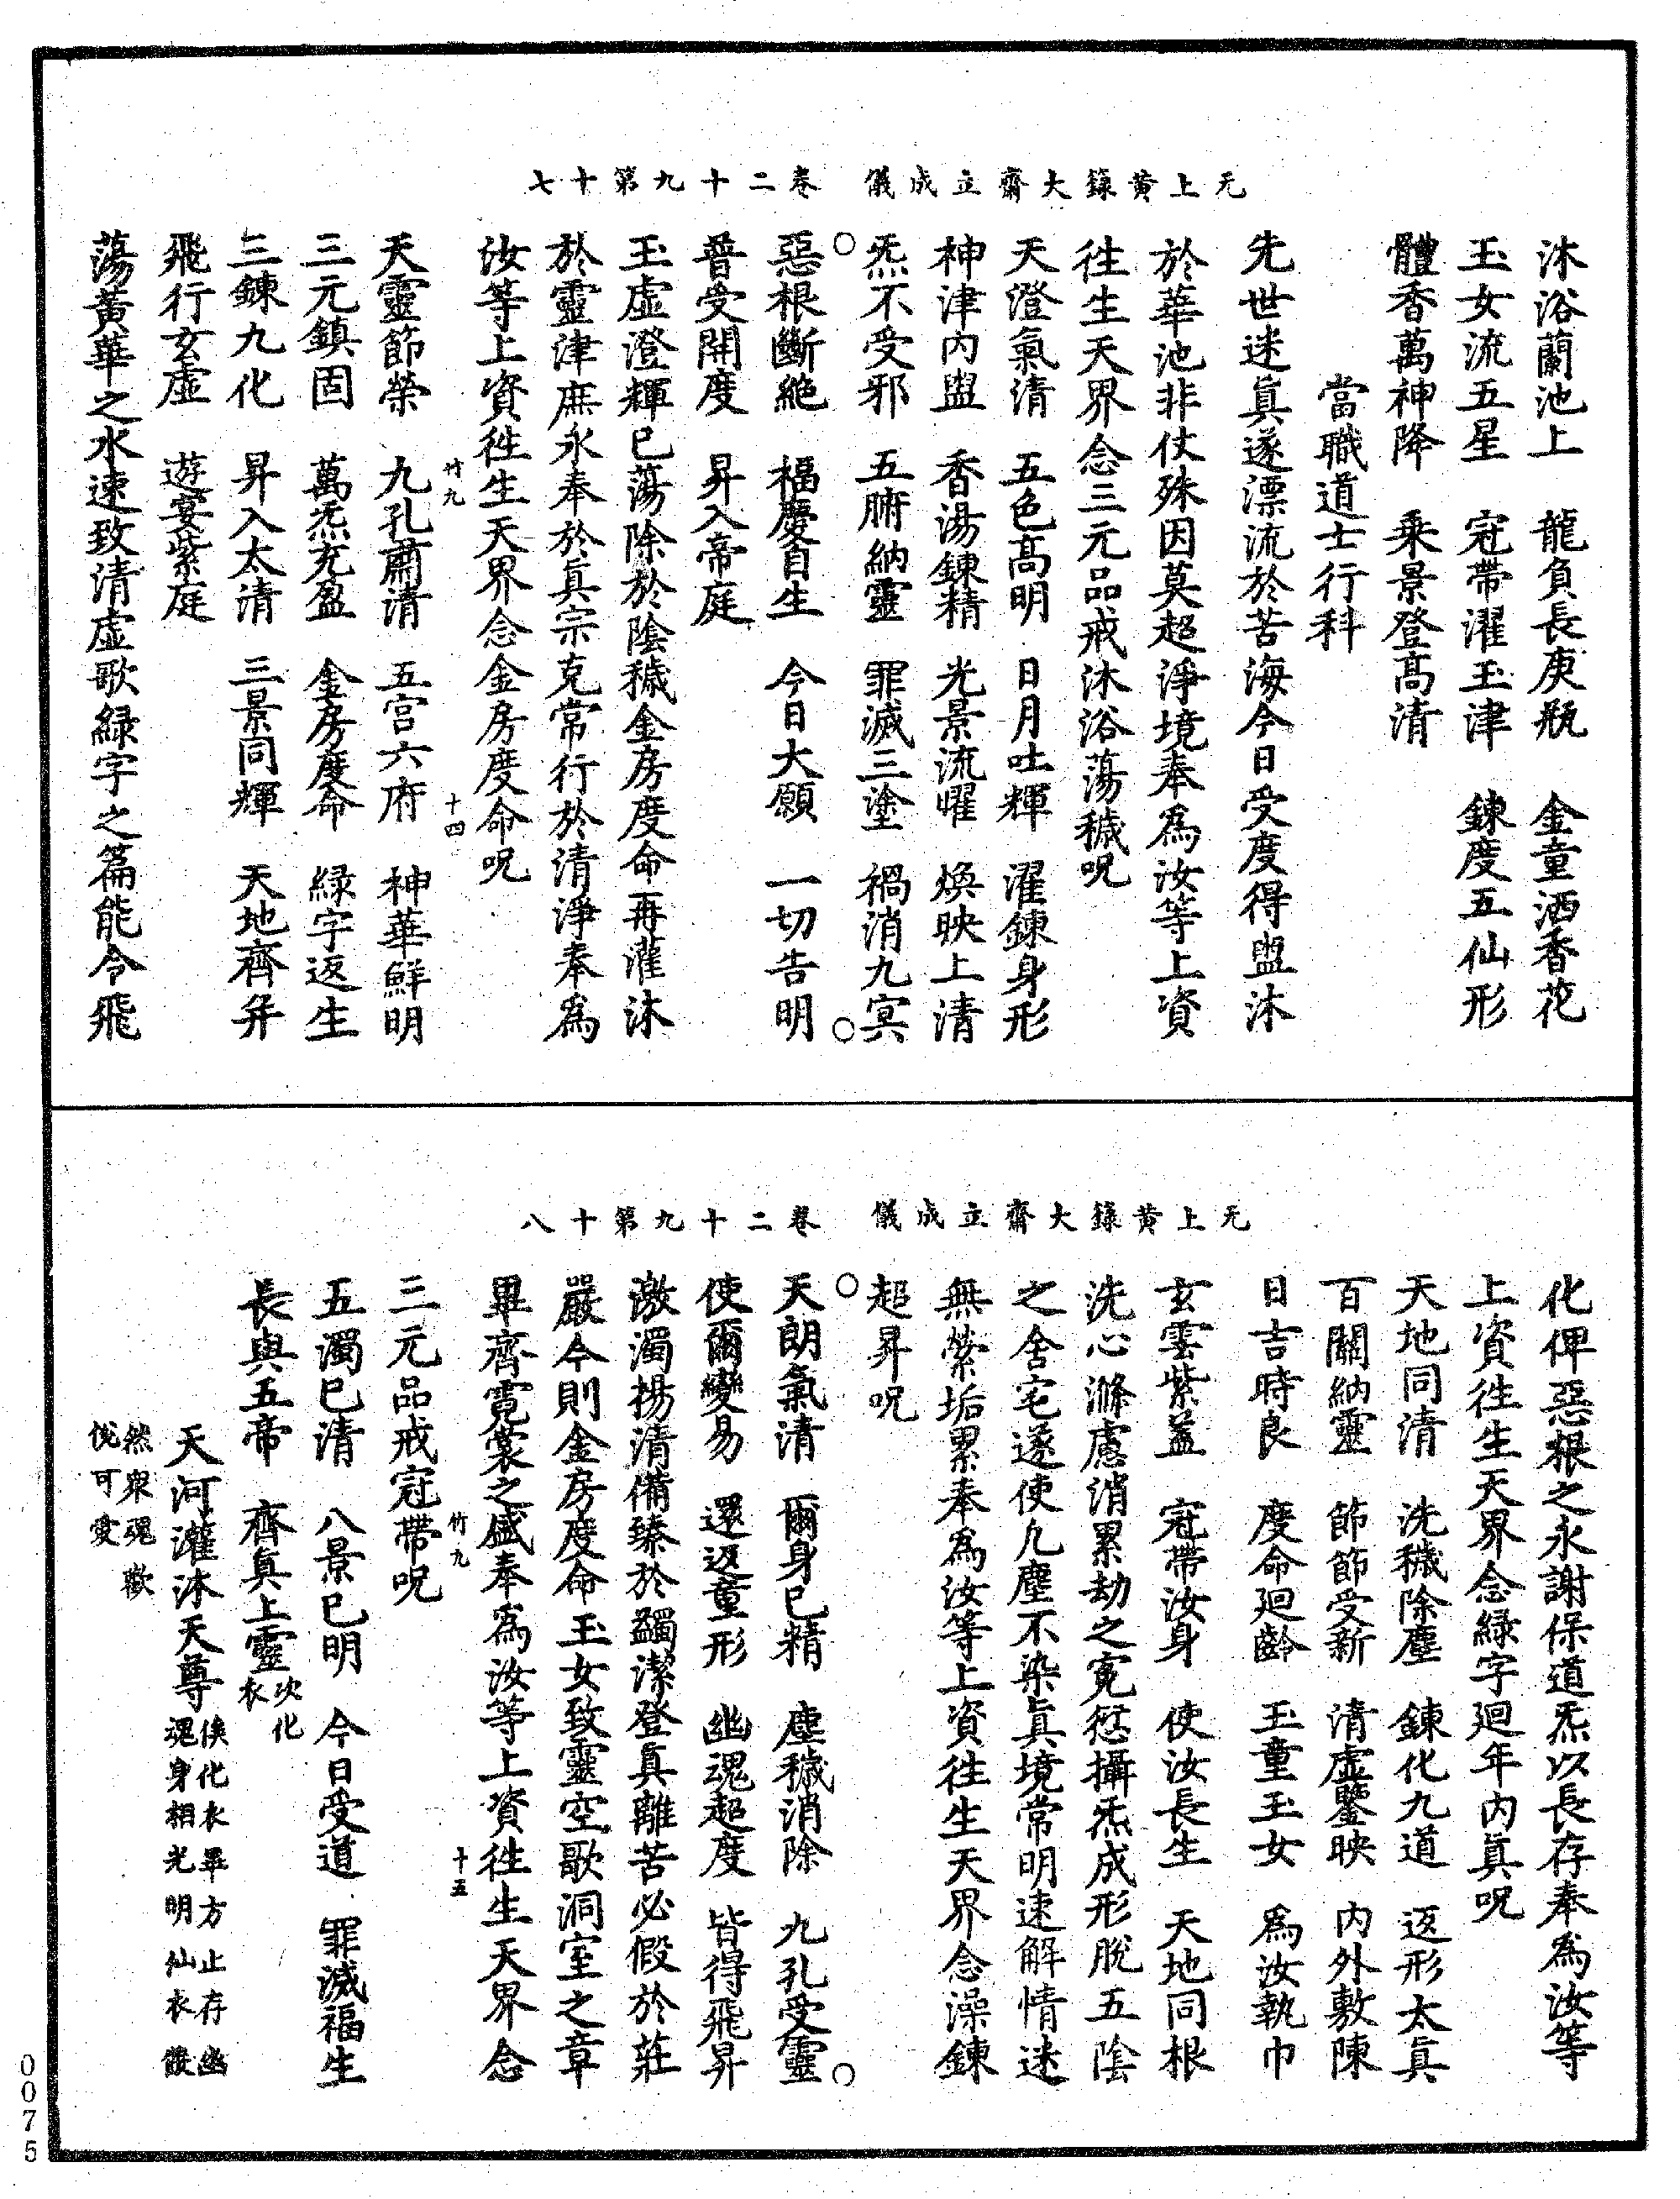 元上黄籙大齋立成儀　卷二十九第十七
沐浴蘭池上　龍負長庚瓶　金童洒香花
玉女流五星　冠帶濯玉津　鍊度五仙形
體香萬神降　乘景登高清
當職道士行科
先世迷眞遂漂流於苦海今日受度得盥沐
於華池非仗殊因莫超淨境奉爲汝等上資
徃生天界念三元品戒沐浴蕩穢呪
天澄氣清　五色高明　日月吐輝　濯鍊身形
神津內盥　香湯鍊精　光景流曜　煥映上清
炁不受邪　五腑納靈　罪滅三塗　禍消九冥
惡根斷絶　福慶自生　今日大願　一切告明
普受開度　昇入帝庭
玉虛澄輝已蕩除於陰穢金房度命再灌沐
於靈津庶永奉於眞宗克常行於清淨奉爲
汝等上資徃生天界念金房度命呪
竹九　十四
天靈節榮　九孔肅清　五宮六府　神華鮮明
三元鎮固　萬炁充盈　金房度命　緑字返生
三鍊九化　昇入太清　三景同輝　天地齊并
飛行玄虛　遊宴紫庭
蕩黄華之水速致清虛歌緑字之篇能令飛
元上黄籙大齋立成儀　卷二十九第十八
化俾惡根之永謝保道炁以長存奉爲汝等
上資徃生天界念緑字廻年內眞呪
天地同清　洗穢除塵　鍊化九道　返形太眞
百關納靈　節節受新　清虛鑒映　內外敷陳
日吉時良　度命廻齡　玉童玉女　爲汝執巾
玄雲紫蓋　冠帶汝身　使汝長生　天地同根
洗心滌慮消累劫之寃愆攝炁成形脫五陰
之舍宅遂使凢塵不染眞境常明速解情迷
無縈垢累奉爲汝等上資徃生天界念澡鍊
超昇呪
天朗氣清　爾身已精　塵穢消除　九孔受靈
使爾變易　還返童形　幽魂超度　皆得飛昇
激濁揚清備臻於蠲潔登眞離苦必假於莊
嚴今則金房度命玉女致靈空歌洞室之章
畢齊霓裳之盛奉爲汝等上資徃生天界念
竹九　十五
三元品戒冠帶呪
五濁已清　八景已明　今日受道　罪滅福生
長與五帝　齊眞上靈次化衣
天河灌沐天尊俟化衣畢方止存幽魂身相光明仙衣儼
然衆魂歡悅可愛
0075